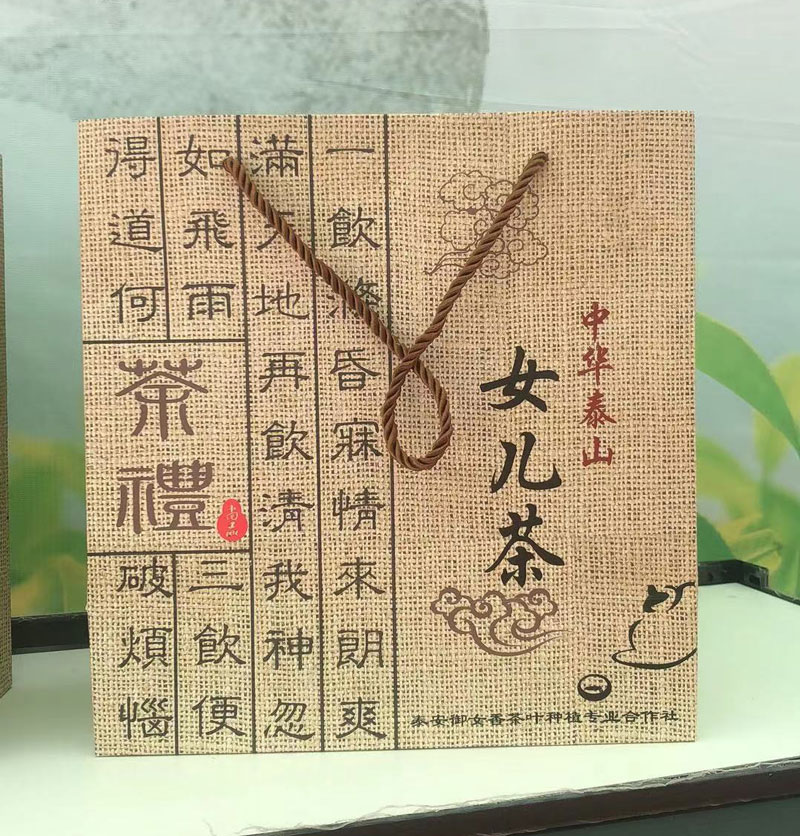 中华泰山
女儿茶
一飲滌昏寐情來朗爽
滿天地再飲清我神忽
如飛雨
三飲便
得道何
破煩惱
茶禮
泰安御女香茶叶种植专业合作社